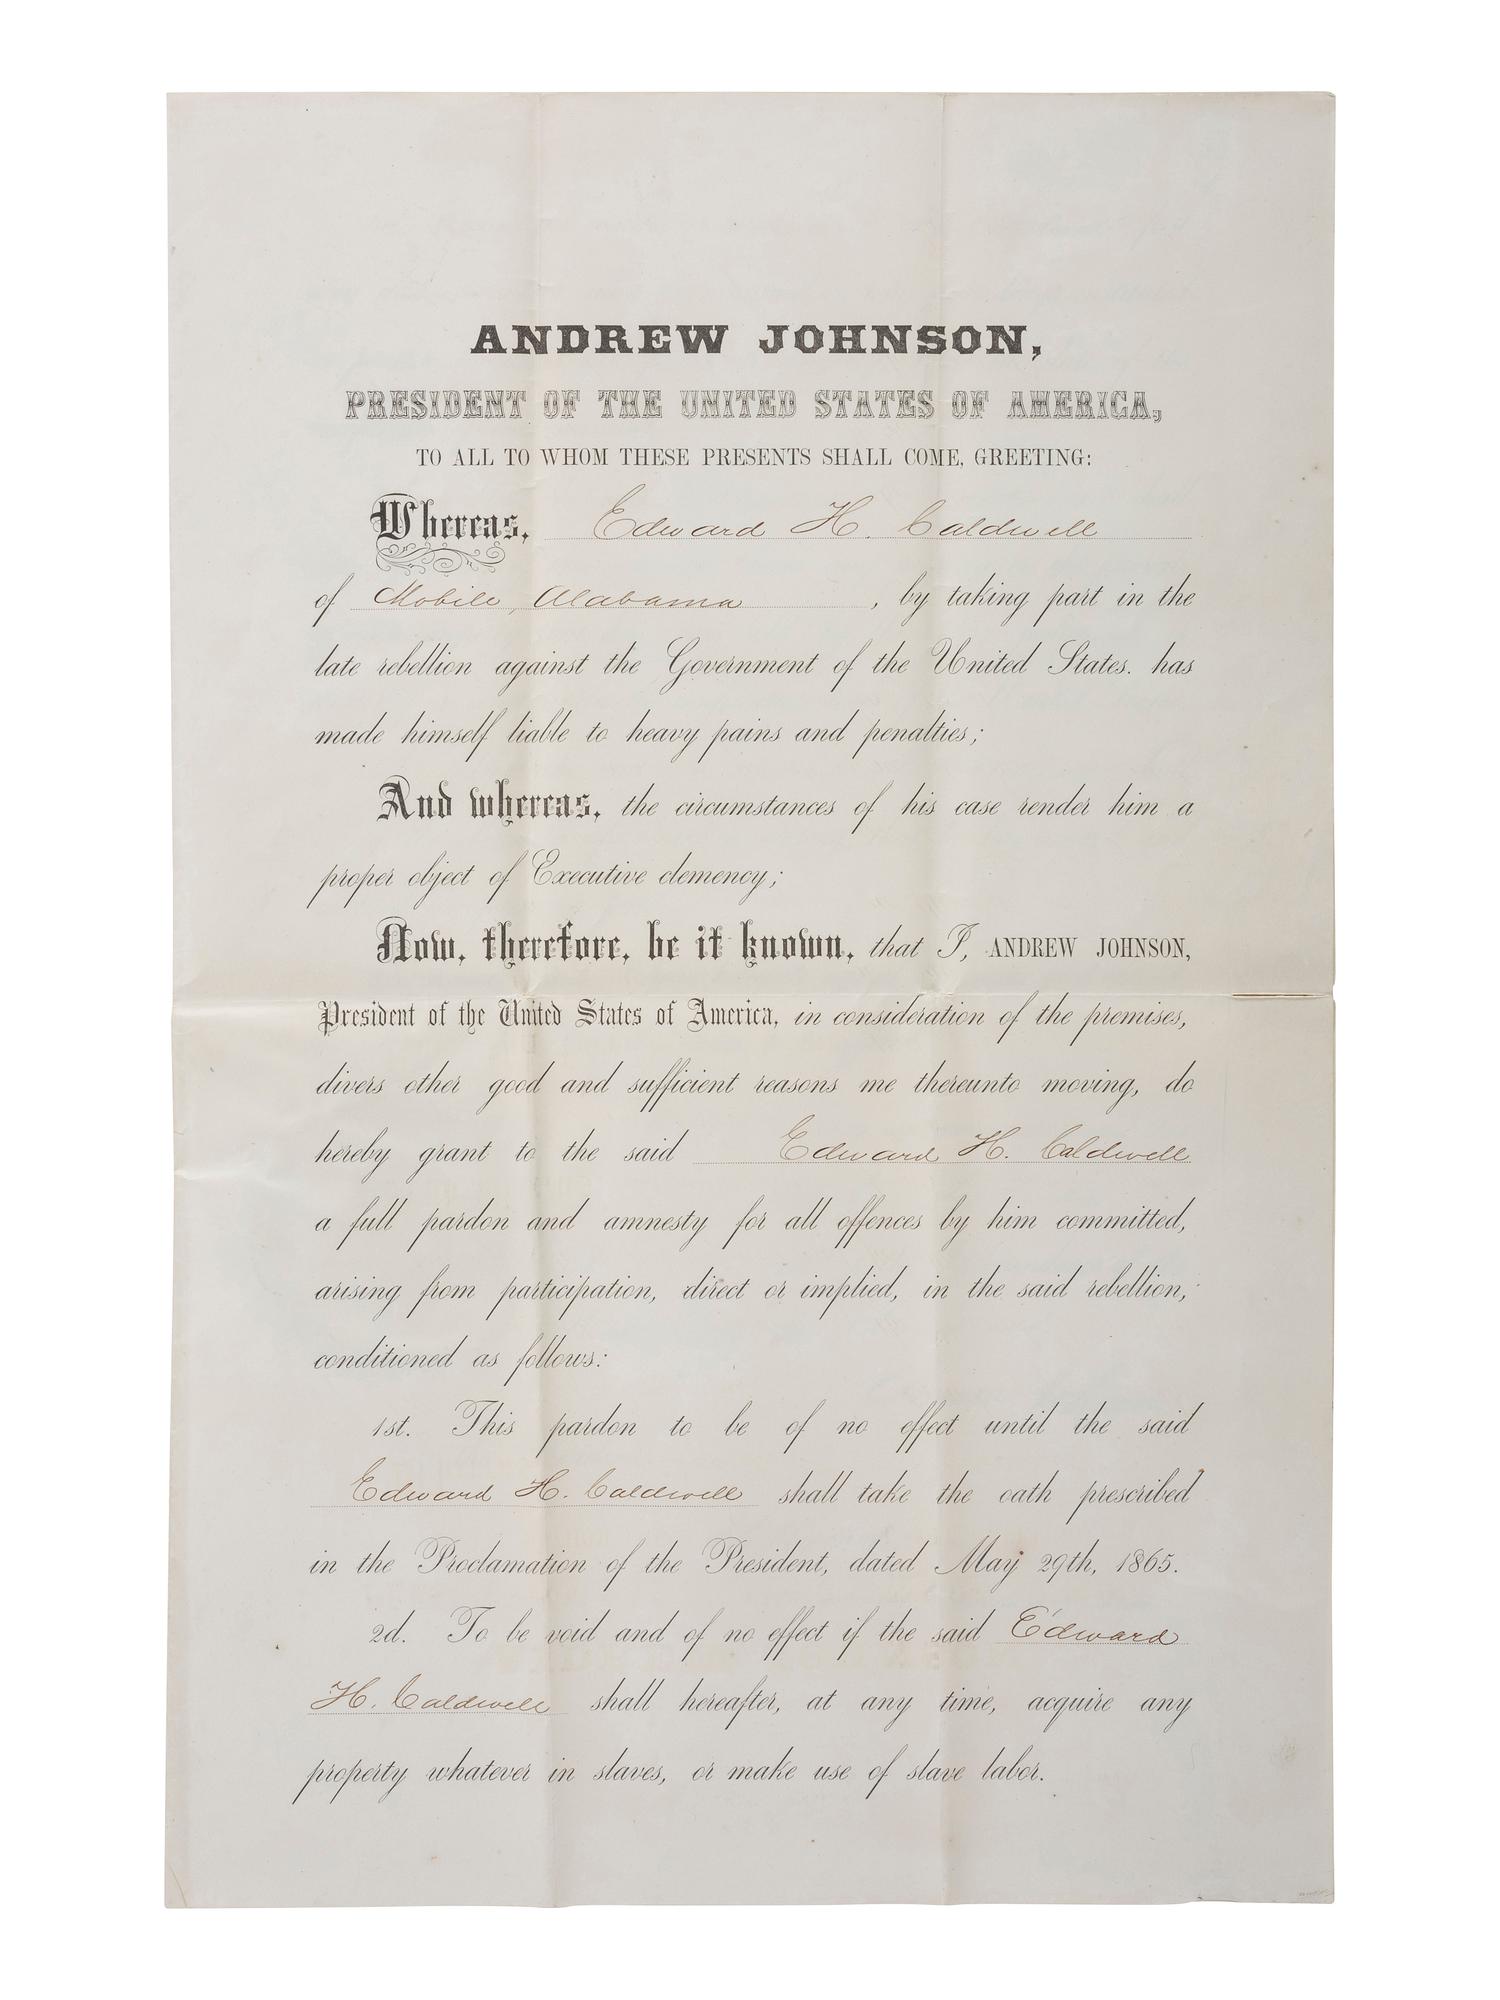 ANDREW JOHNSON,
PRESIDENT OF THE UNITED STATES OF AMERICA,
TO ALL TO WHOM THESE PRESENTS SHALL COME, GREETING:
Whereas, Edward H. Caldwell
of Mobile, Alabama , by taking part in the
late rebellion against the Government of the United States. has
made himself liable to heavy pains and penalties;
And whereas, the circumstances of his case render him a
proper object of Executive clemency;
Now, therefore, be it known, that I, ANDREW JOHNSON,
President of the United States of America, in consideration of the premises,
divers other good and sufficient reasons me thereunto moving, do
hereby grant to the said Edward H. Caldwell
a full pardon and amnesty for all offences by him committed,
arising from participation, direct or implied, in the said rebellion,
conditioned as follows:
1st. This pardon to be of no effect until the said
Edward H. Caldwell shall take the oath prescribed
in the Proclamation of the President, dated May 29th, 1865.
2d. To be void and of no effect if the said Edward
H. Caldwell shall hereafter, at any time, acquire any
property whatever in slaves, or make use of slave labor.